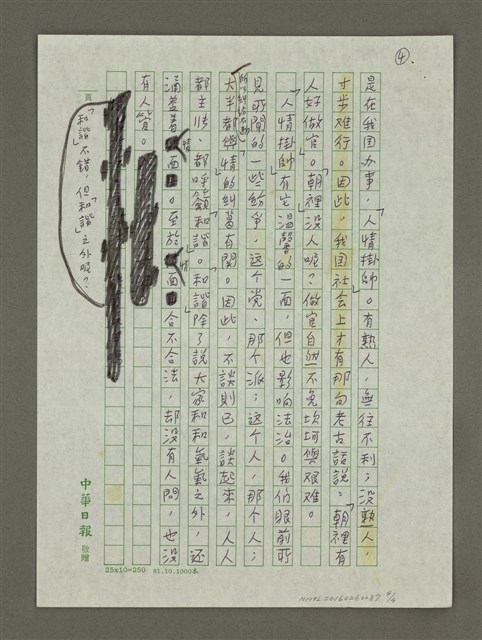 ④.
是在我国办事，「人情掛帥」。有熟人，無往不利；没熟人，
寸步难行。因此，我国社会上才有那句老古話說：「朝裡有
人好做官。」朝裡没人呢？做官自然不免坎坷與艰难。
「人情掛帥」有它温馨的一面，但也影响法治。我们眼前所
見所聞的一些紛爭，这个党、那个派；这个人，那个人；
大半都與「情」的糾葛有關。因此，不談則已，談起來，人人
都主張、都呼籲「和諧」。和諧除了說大家和和氣氣之外，还
涵蓋着「情」面。至於「情」面合不合法，却没有人問，也没
有人管。
「和諧」不錯，但「和諧」之外呢？
頁
中華日報 敬贈
25x10=250 81.10.1000本